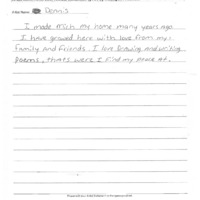 Dennis
I made Mich my home many years ago
I have growed here with love from my
Family and Friends. I love Drawing and writing
Poems, thats were I find my peace at.